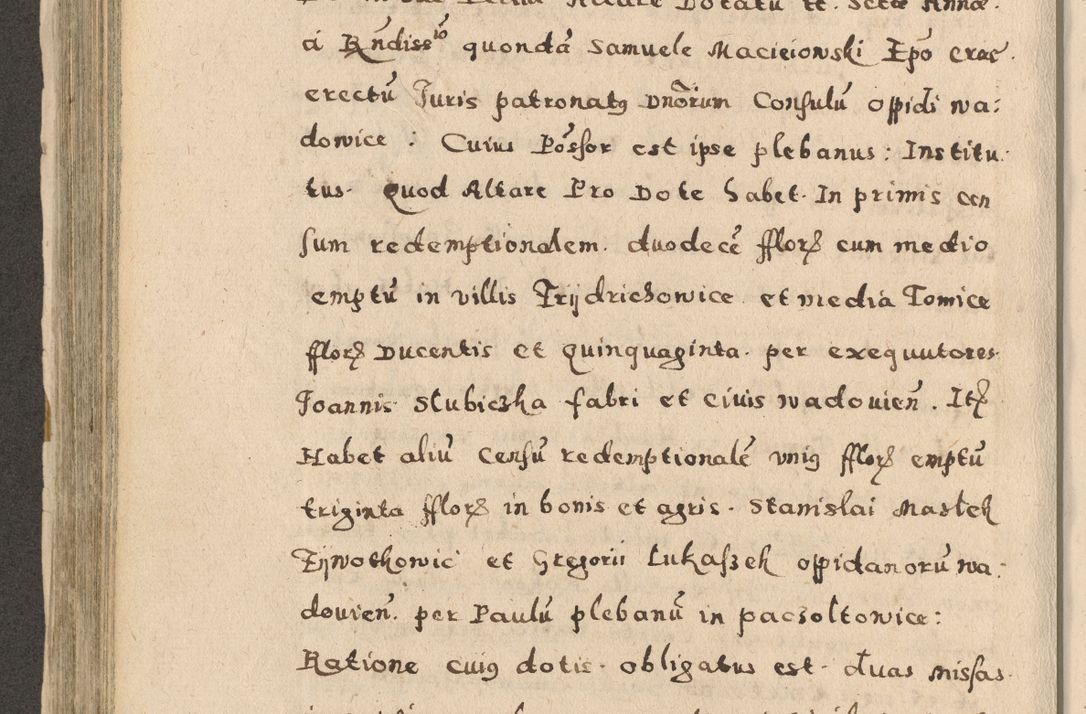 Altare Dotatū tt. Sctæ Annæ.
á Rńdissᵒ quondā Samuele Macieiowski Epō crac.
erectū Juris patronatꝯ Dnōrum Consulū oppidi wa:
dowice : Cuius Pōsſor est ipse plebanus: Institu.
tus. Quod Altare Pro Dote habet. In primis cen
ſum redemptionalem. duodecē fflorꝝ cum medio
emptū in villis Frÿdrichowice et media Tomice
fflorꝝ Ducentis et quinquaginta. per exequutores
Joannis Stubiczka fabri et civis wadouien̄. Itꝝ
Habet aliū Censū redemptionalē vniꝯ fflorꝝ emptū
triginta fflorꝝ in bonis et agris. Stanislai Mastek
Zÿwotkowic et Gregorii Lukaszek oppidanorū wa:
douien̄. per Paulū plebanū in paczoltowice:
Ratione cuiꝯ dotis. obligatus est. duas missas.